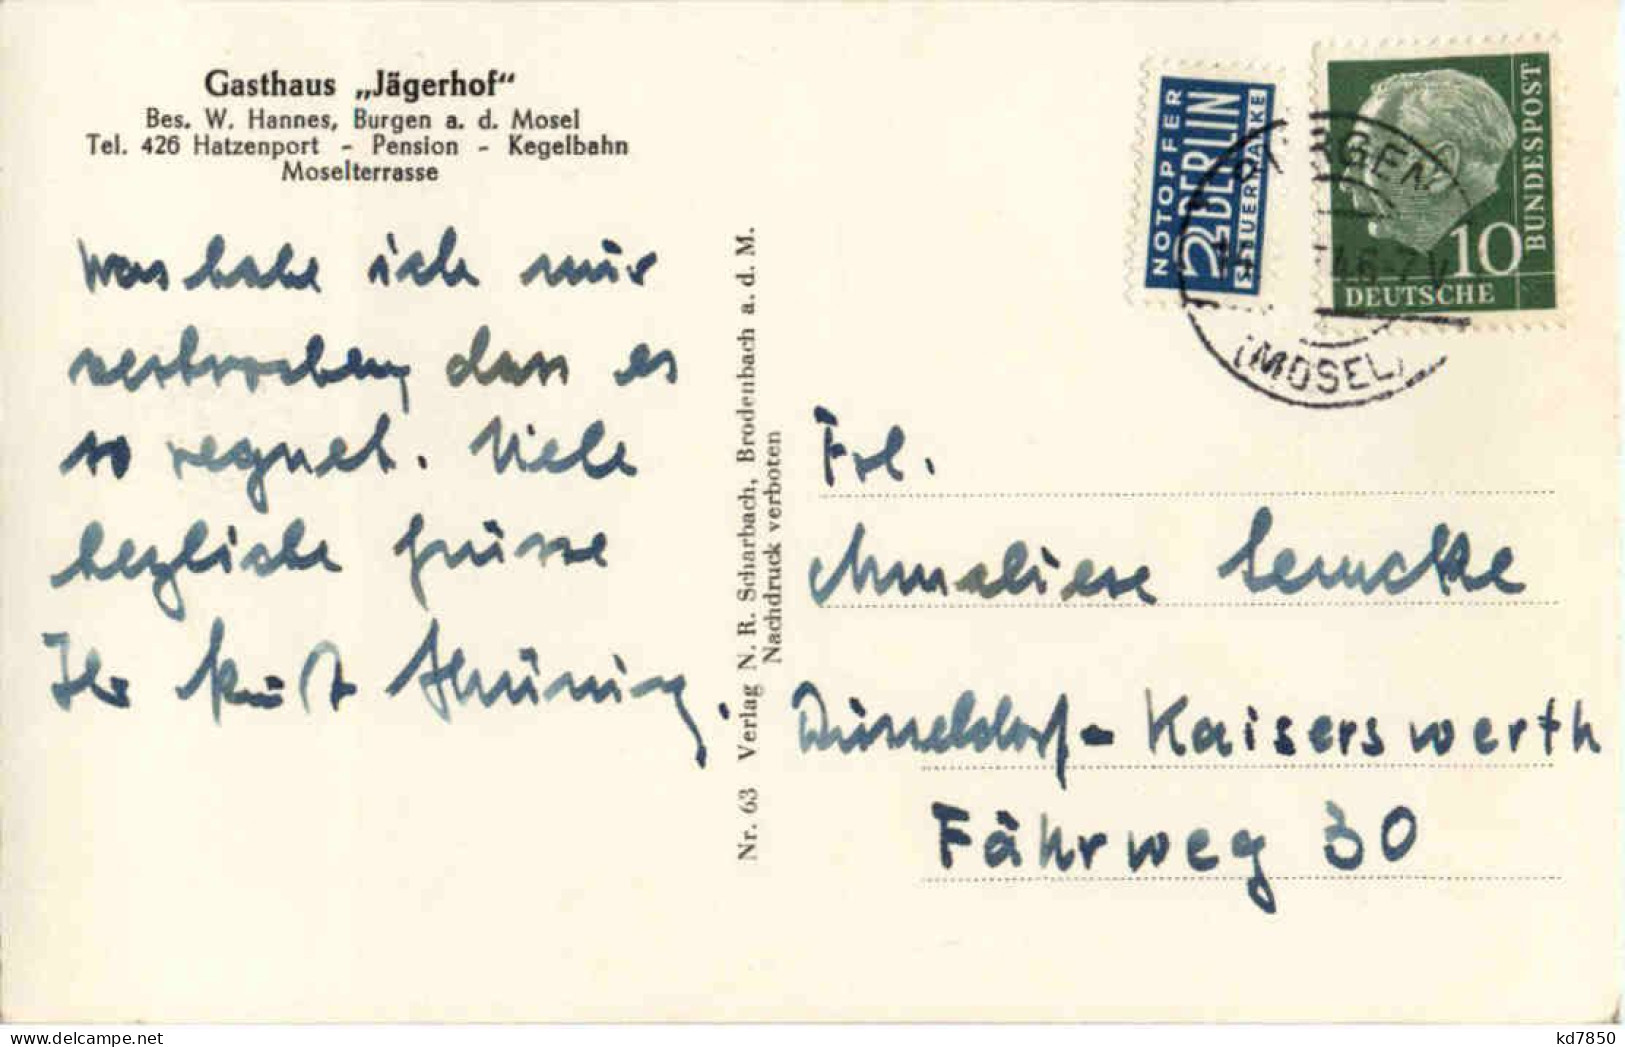 Gasthaus „Jägerhof“
Bes. W. Hannes, Burgen a. d. Mosel
Tel. 426 Hatzenport - Pension - Kegelbahn
Moselterrasse
Was habe ich nur
verbrochen, dass es
so regnet. Viele
herzliche Grüsse
Ihr Kurt
Nr. 63 Verlag N. R. Scharbach, Brodenbach a. d. M.
Nachdruck verboten
NOTOPFER
2 BERLIN
STEUERMARKE
10
DEUTSCHE
BUNDESPOST
BURGEN
(MOSEL)
Frl.
Annaliese
Düsseldorf - Kaiserswerth
Fährweg 30
kd7850